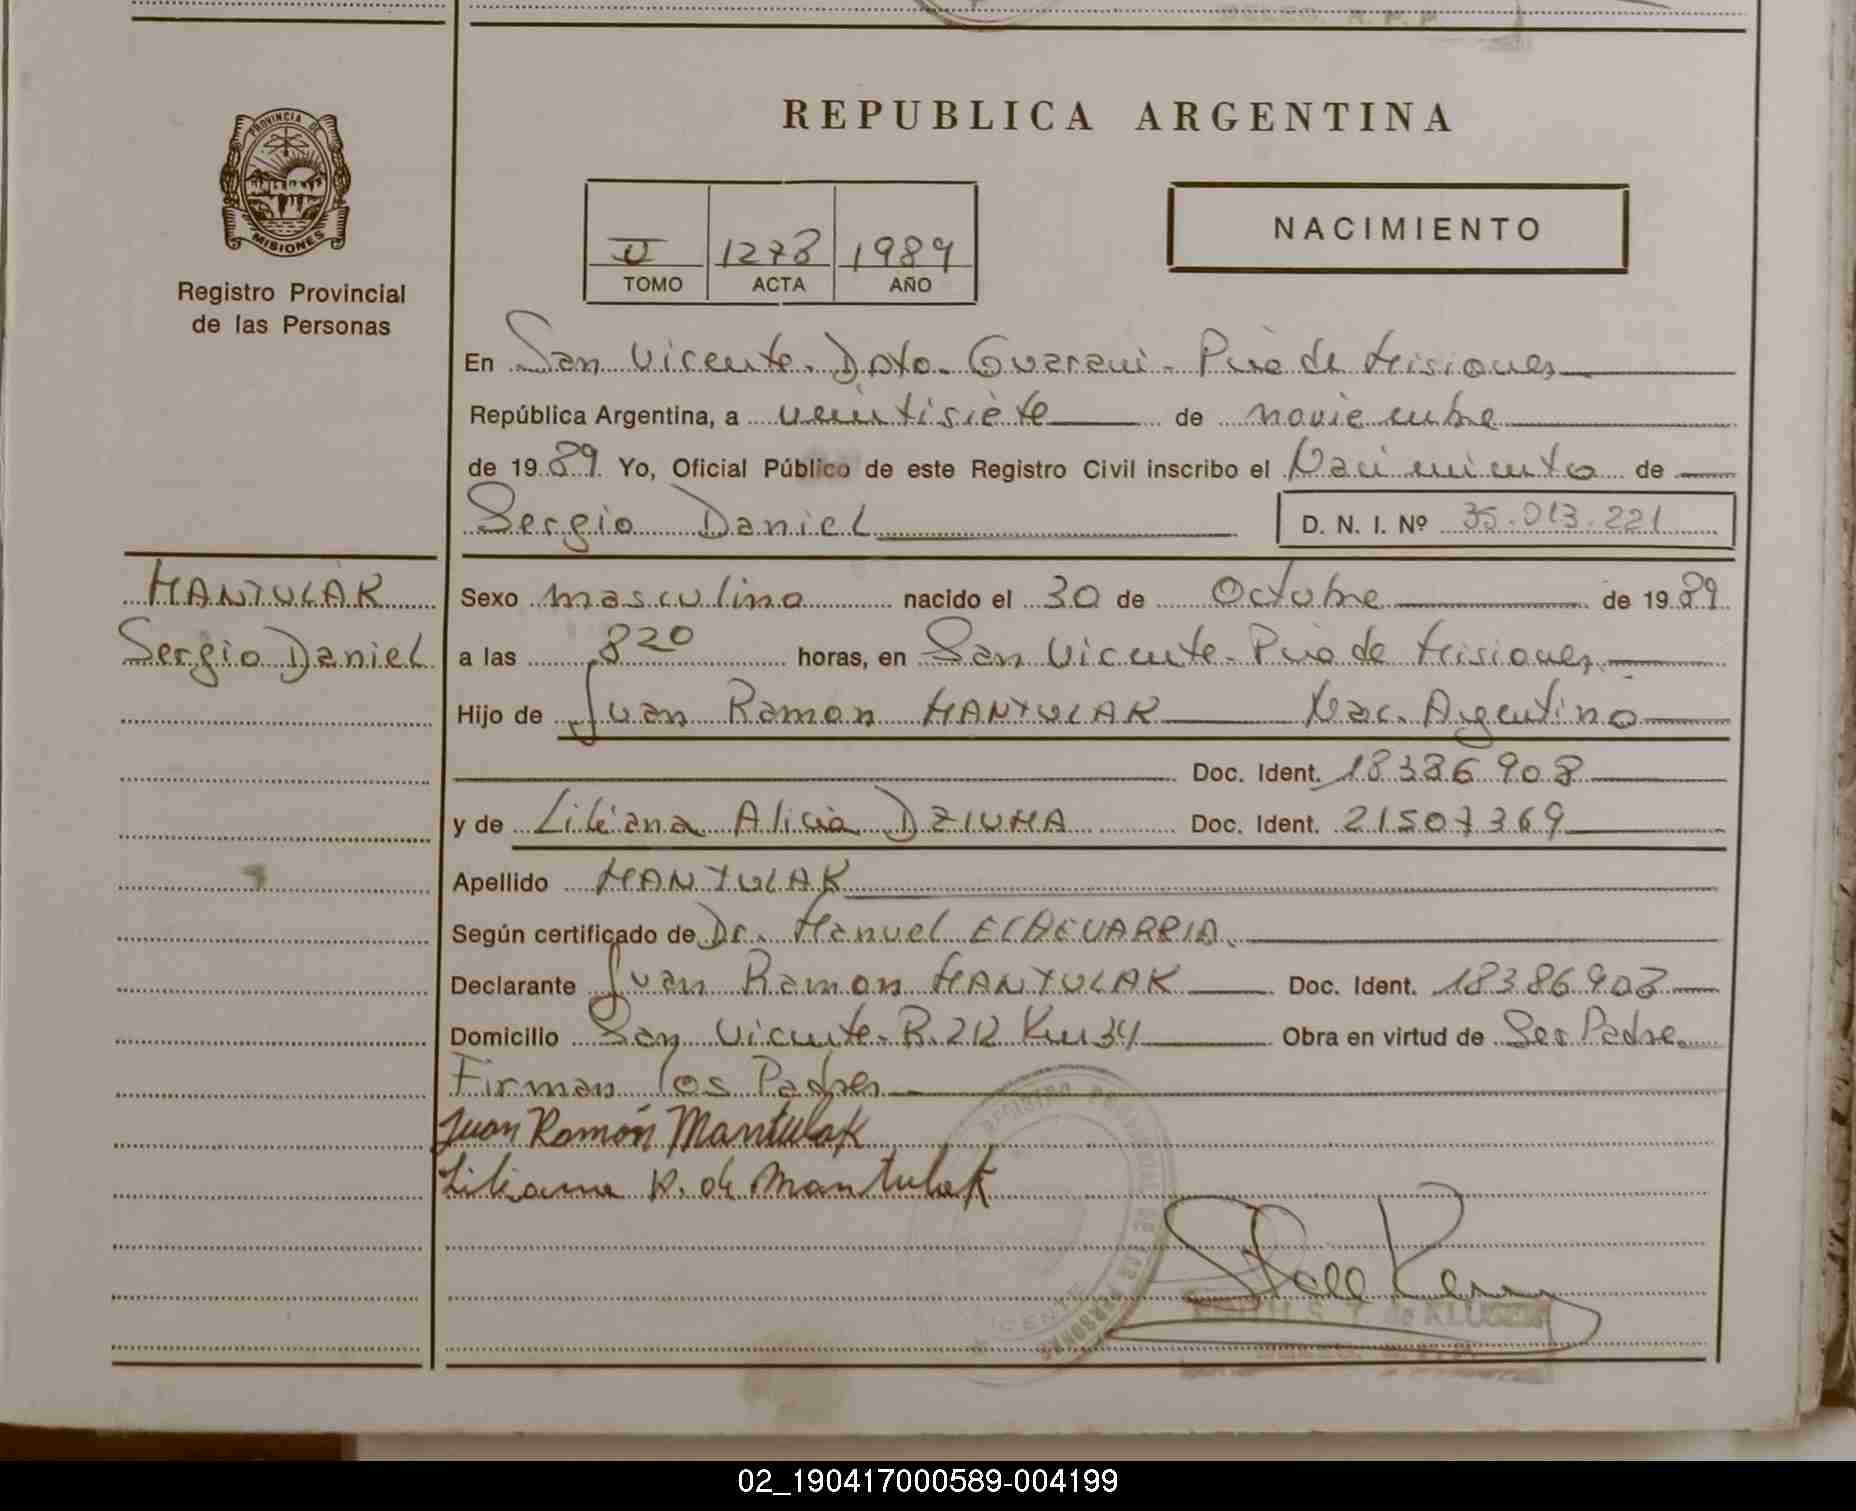 DELEG. R. P. P.
REPUBLICA ARGENTINA
PROVINCIA DE
MISIONES
Registro Provincial
de las Personas
NACIMIENTO
II 1278 1989
TOMO ACTA AÑO
En San Vicente. Dpto. Guarani. Pvia de Misiones
República Argentina, a veintisiete de noviembre
de 1989. Yo, Oficial Público de este Registro Civil inscribo el Nacimiento de
Sergio Daniel D. N. I. Nº 35.013.221
MANTULAK
Sergio Daniel
Sexo masculino nacido el 30 de Octubre de 1989
a las 820 horas, en San Vicente. Pvia de Misiones
Hijo de Juan Ramon MANTULAK Nac. Argentino
Doc. Ident. 18386908
y de Liliana Alicia DZIUMA Doc. Ident. 21507369
Apellido MANTULAK
Según certificado de Dr. Manuel ECHEVARRIA.
Declarante Juan Ramon MANTULAK Doc. Ident. 18386908
Domicilio San Vicente. R. 212 Km 34 Obra en virtud de Ser Padre.
Firman los Padres
Juan Ramón Mantulak
Liliana D. de Mantulak
REGISTRO PROVINCIAL DE LAS PERSONAS
VICENTE
T. de KLUGE
02_190417000589-004199